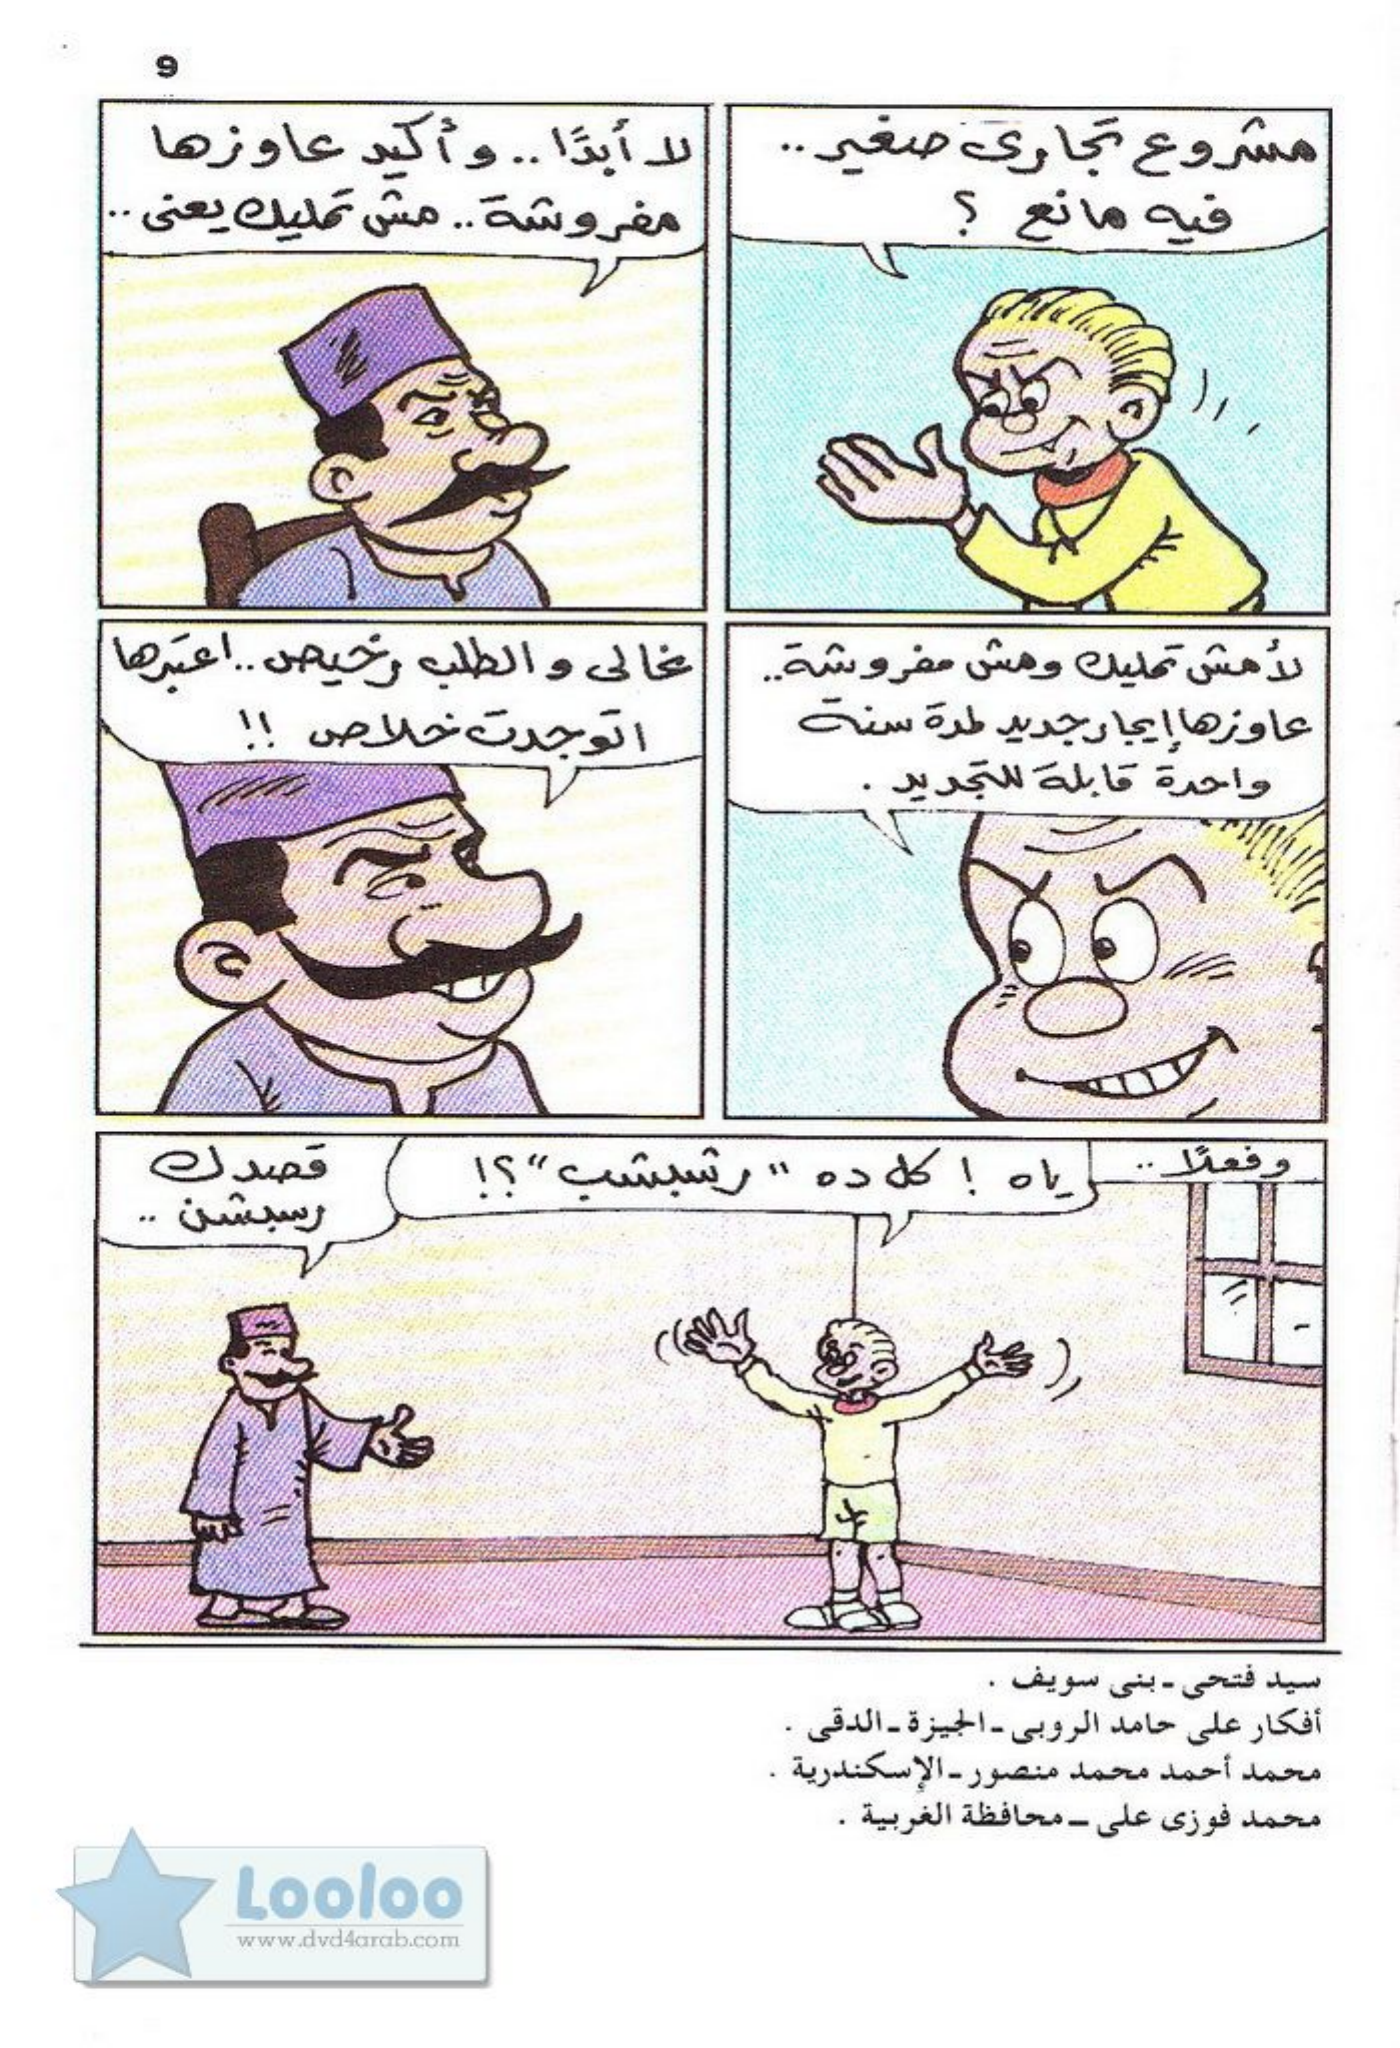 9
مشروع تجارى صغير..
فيه مانع ؟
لا أبدًا .. وأكيد عاوزها
مفروشة .. مش تمليك يعنى ..
لأ مش تمليك ومش مفروشة ..
عاوزها إيجار جديد لمدة سنة
واحدة قابلة للتجديد .
غالى والطلب رخيص .. اعتبرها
اتوجدت خلاص !!
وفعلًا ..
ياه ! كل ده "رشبشب"؟!
قصدك
رسبشن ..
سيد فتحى ـ بنى سويف .
أفكار على حامد الروبى ـ الجيزة ـ الدقى .
محمد أحمد محمد منصور ـ الإسكندرية .
محمد فوزى على ـ محافظة الغربية .
Looloo
www.dvd4arab.com